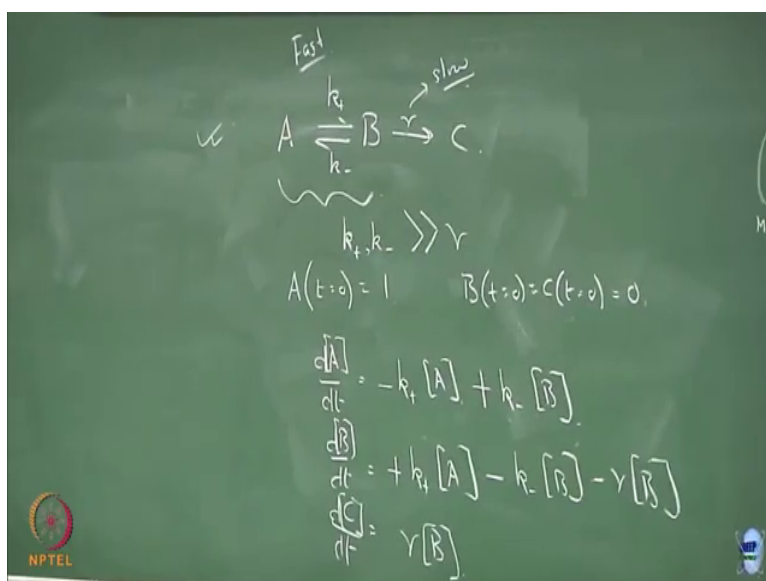 Fast
slow
k₊
A ⇌ B —r→ C.
k₋
k₊, k₋ >> r
A(t=0) = 1 B(t=0) = C(t=0) = 0.
d[A]/dt = -k₊[A] + k₋[B]
d[B]/dt = +k₊[A] - k₋[B] - r[B]
d[C]/dt = r[B]
M
NPTEL